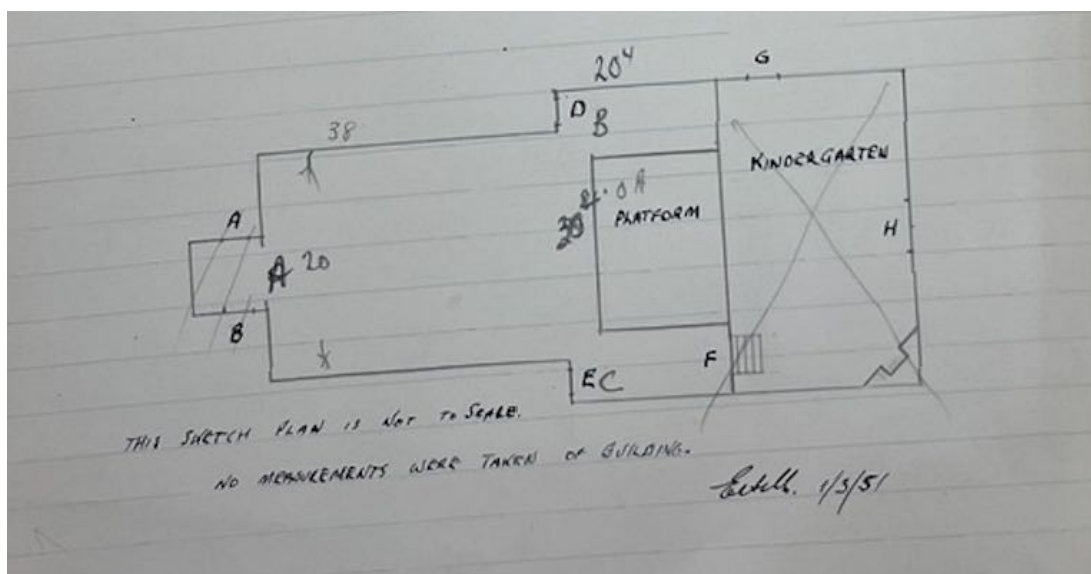 G
20⁴
D
B
38
KINDERGARTEN
A
PLATFORM
H
A 20
B
F
E C
THIS SKETCH PLAN IS NOT TO SCALE.
NO MEASUREMENTS WERE TAKEN OF BUILDING.
1/3/51